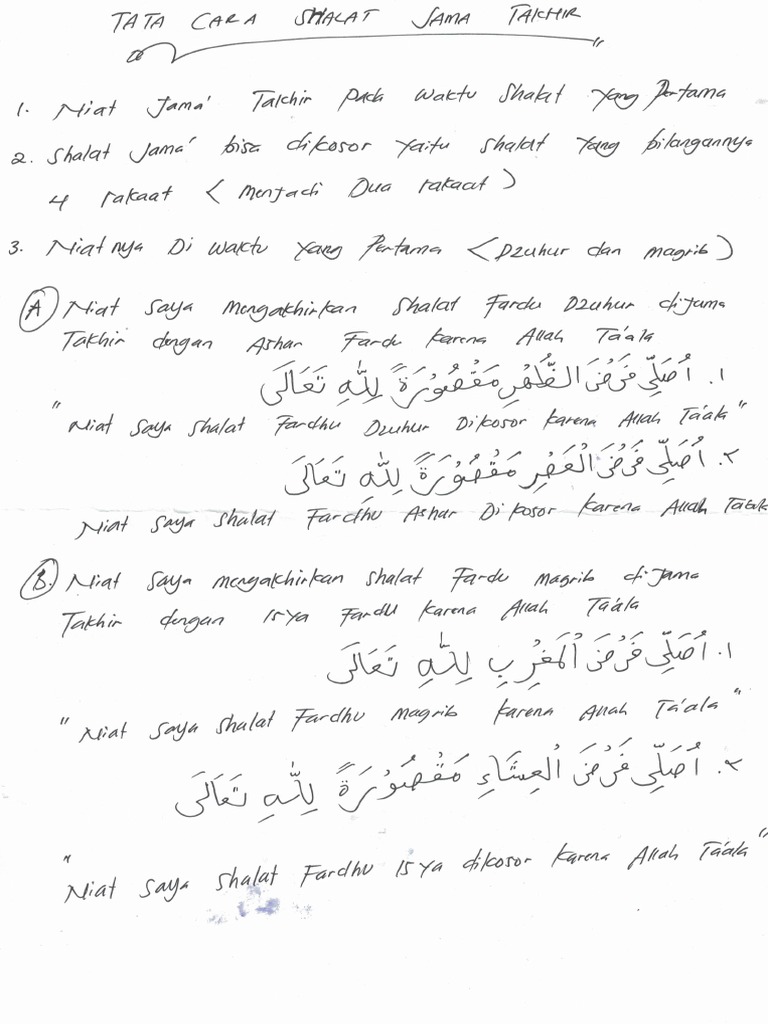 TATA CARA SHALAT JAMA TAKHIR
1. Niat Jama' Takhir pada waktu shalat yang Pertama
2. Shalat Jama' bisa dikosor yaitu shalat yang bilangannya
4 rakaat (menjadi Dua rakaat)
3. Niatnya Di waktu yang Pertama (Dzuhur dan magrib)
A Niat saya mengakhirkan shalat Fardu Dzuhur dijama
Takhir dengan Ashar Fardu karena Allah Ta'ala
١. اُصَلِّى فَرْضَ الظُّهْرِ مَقْصُوْرَةً لِلّٰهِ تَعَالَى
"Niat saya shalat Fardhu Dzuhur Dikosor karena Allah Ta'ala"
٢. اُصَلِّى فَرْضَ الْعَصْرِ مَقْصُوْرَةً لِلّٰهِ تَعَالَى
Niat saya shalat Fardhu Ashar Dikosor karena Allah Ta'ala
B. Niat saya mengakhirkan shalat Fardu magrib dijama
Takhir dengan isya Fardu karena Allah Ta'ala
١. اُصَلِّى فَرْضَ الْمَغْرِبِ لِلّٰهِ تَعَالَى
"Niat saya shalat Fardhu magrib karena Allah Ta'ala"
٢. اُصَلِّى فَرْضَ الْعِشَاءِ مَقْصُوْرَةً لِلّٰهِ تَعَالَى
"Niat saya shalat Fardhu isya dikosor karena Allah Ta'ala"